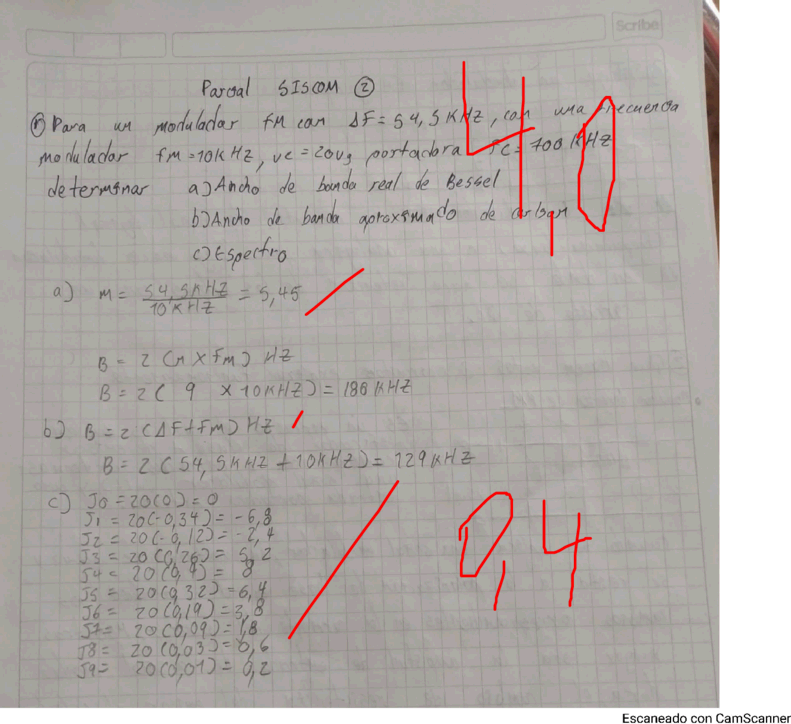 Scribe
Parcial SISCOM ②
① Para un modulador FM con ΔF = 54,5 KHZ, con una frecuencia
modulador fm = 10KHZ, vc = 20vg portadora fc = 100 KHZ
determinar a) Ancho de banda real de Bessel
b) Ancho de banda aproximado de carlson
c) Espectro
4,0
a) m = 54,5KHZ / 10KHZ = 5,45
B = 2 (n x fm) HZ
B = 2 ( 9 x 10KHZ) = 180 KHZ
b) B = 2 (ΔF + fm) HZ
B = 2 (54,5KHZ + 10KHZ) = 129 KHZ
c) J0 = 20(0) = 0
J1 = 20(-0,34) = -6,8
J2 = 20(-0,12) = -2,4
J3 = 20(0,26) = 5,2
J4 = 20(0,4) = 8
J5 = 20(0,32) = 6,4
J6 = 20(0,19) = 3,8
J7 = 20(0,09) = 1,8
J8 = 20(0,03) = 0,6
J9 = 20(0,01) = 0,2
0,4
Escaneado con CamScanner